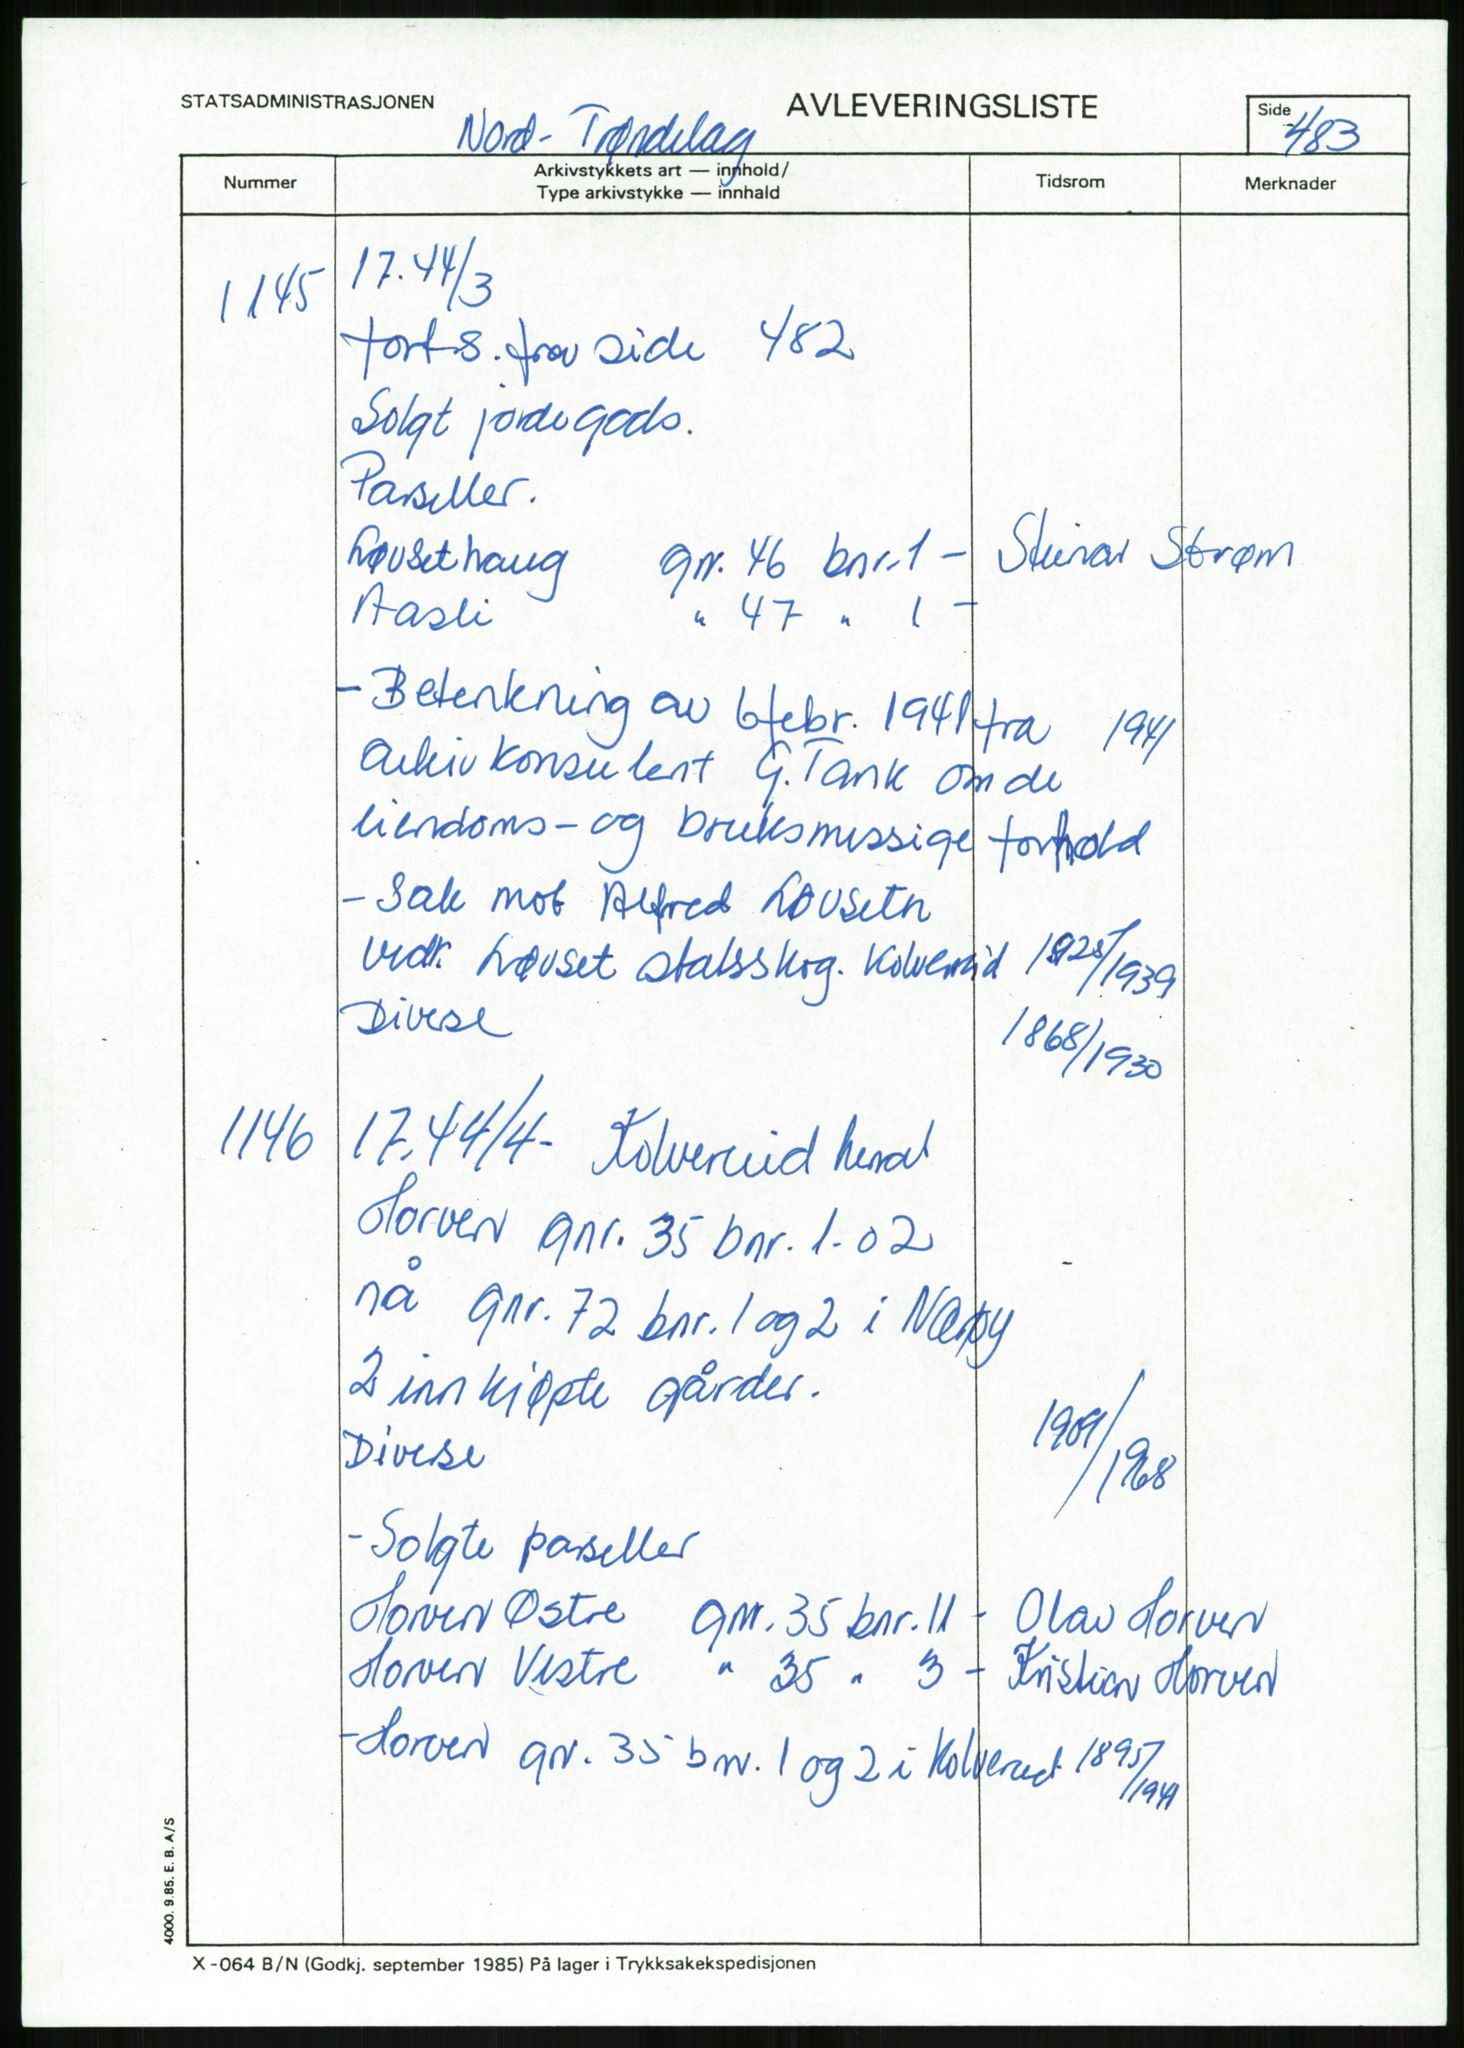 STATSADMINISTRASJONEN
AVLEVERINGSLISTE
Side 483
Nord-Trøndelag
Nummer
Arkivstykkets art — innhold/
Type arkivstykke — innhald
Tidsrom
Merknader
1145 17.44/3
forts. fra side 482
Solgt jordegods.
Parseller.
Løvsethaug gnr. 46 bnr. 1 - Steinar Strøm
Aasli " 47 " 1 -
- Betenkning av 6 febr. 1941 fra 1941
arkivkonsulent G. Tank om de
eiendoms- og bruksmessige forhold
- Sak mot Alfred Løvseth
vedr. Løvset statsskog. Kolvereid 1925/1939
Diverse 1868/1930
1146 17.44/4- Kolvereid herad
Horven gnr. 35 bnr. 1. o 2
nå gnr. 72 bnr. 1 og 2 i Nærøy
2 innkjøpte gårder.
Diverse 1909/1968
- Solgte parseller
Horven Østre gnr. 35 bnr. 11 - Olav Horven
Horven Vestre " 35 " 3 - Kristian Horven
- Horven gnr. 35 bnr. 1 og 2 i Kolvereid 1895/1941
4000. 9.85. E. B. A/S
X-064 B/N (Godkj. september 1985) På lager i Trykksakekspedisjonen